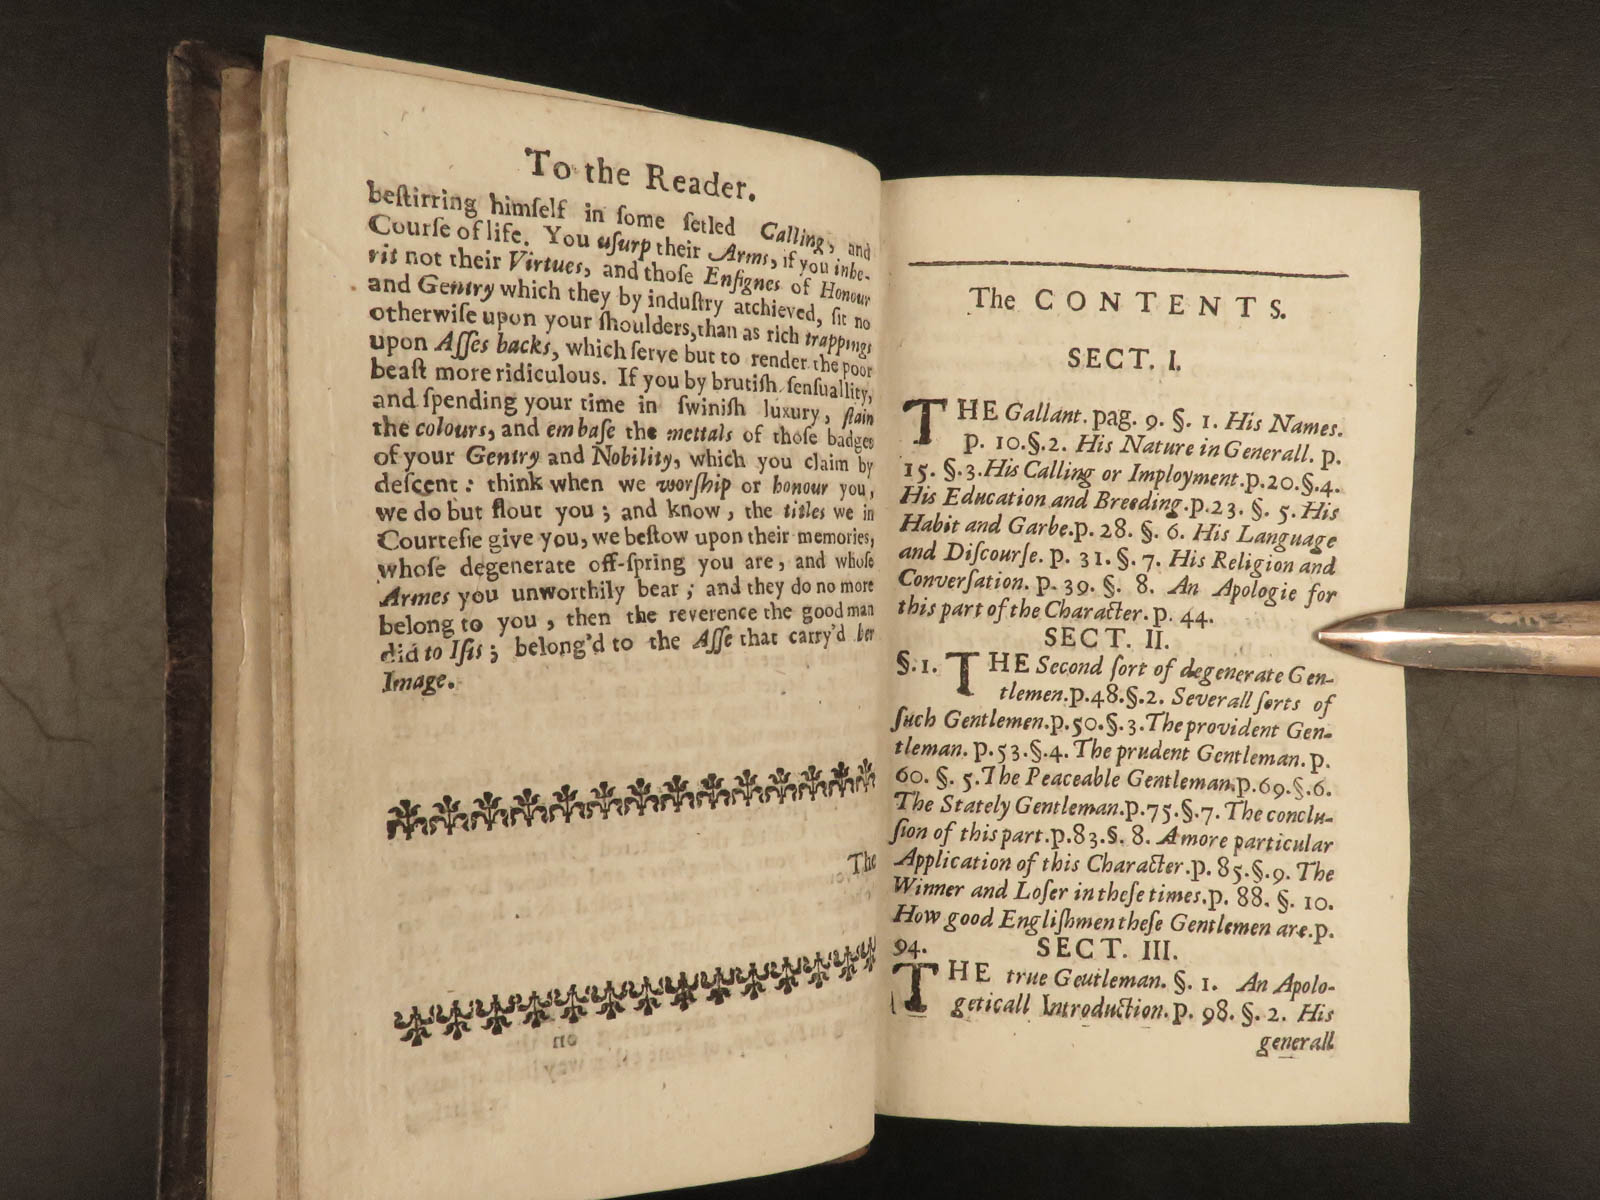 To the Reader.
beſtirring himſelf in ſome ſetled Calling, and
Courſe of life. You uſurp their Arms, if you inhe-
rit not their Virtues, and thoſe Enſignes of Honour
and Gentry which they by induſtry atchieved, ſit no
otherwiſe upon your ſhoulders, than as rich trappings
upon Aſſes backs, which ſerve but to render the poor
beaſt more ridiculous. If you by brutiſh ſenſuallity,
and ſpending your time in ſwiniſh luxury, ſtain
the colours, and embaſe the mettals of thoſe badges
of your Gentry and Nobility, which you claim by
deſcent: think when we worſhip or honour you,
we do but flout you; and know, the titles we in
Courteſie give you, we beſtow upon their memories,
whoſe degenerate off-ſpring you are, and whoſe
Armes you unworthily bear; and they do no more
belong to you, then the reverence the good man
did to Iſis; belong'd to the Aſſe that carry'd her
Image.
The
The CONTENTS.
SECT. I.
THE Gallant. pag. 9. §. 1. His Names.
p. 10. §. 2. His Nature in Generall. p.
15. §. 3. His Calling or Imployment. p. 20. §. 4.
His Education and Breeding. p. 23. §. 5. His
Habit and Garbe. p. 28. §. 6. His Language
and Diſcourſe. p. 31. §. 7. His Religion and
Converſation. p. 39. §. 8. An Apologie for
this part of the Character. p. 44.
SECT. II.
§. 1. THE Second ſort of degenerate Gen-
tlemen. p. 48. §. 2. Severall ſorts of
ſuch Gentlemen. p. 50. §. 3. The provident Gen-
tleman. p. 53. §. 4. The prudent Gentleman. p.
60. §. 5. The Peaceable Gentleman. p. 69. §. 6.
The Stately Gentleman. p. 75. §. 7. The conclu-
ſion of this part. p. 83. §. 8. A more particular
Application of this Character. p. 85. §. 9. The
Winner and Loſer in theſe times. p. 88. §. 10.
How good Engliſhmen theſe Gentlemen are. p.
94. SECT. III.
THE true Geutleman. §. 1. An Apolo-
geticall Introduction. p. 98. §. 2. His
generall